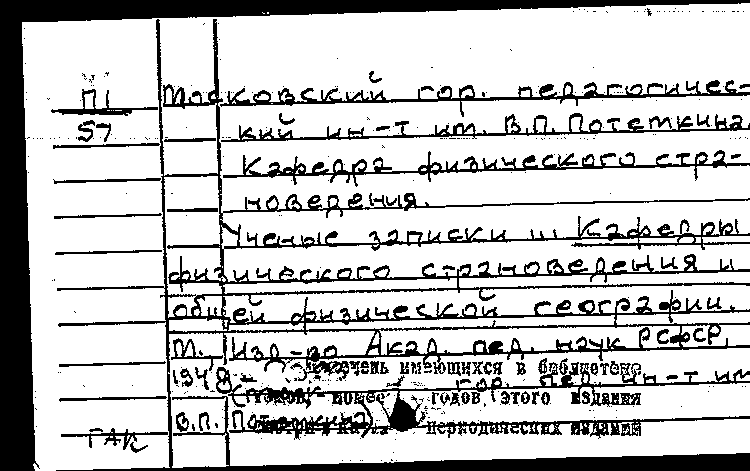 П1 Московский гор. педагогичес-
57 кий ин-т им. В.П. Потемкина.
Кафедра физического стра-
новедения.
Ученые записки ... Кафедры
физического страноведения и
общей физической географии.
М., Изд-во Акад. пед. наук РСФСР,
1948 - гор. пед. ин-т им
Перечень имеющихся в библиотеке
томов, номеров годов этого издания
В.П. Потемкина)
периодических изданий
ГАК